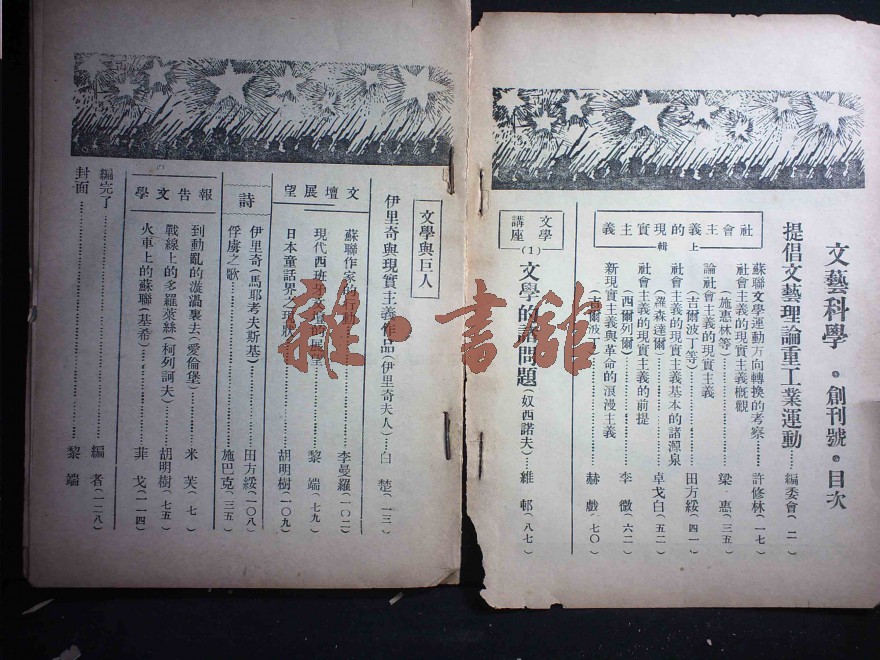 文藝科學 • 創刊號 • 目次
提倡文藝理論重工業運動……編委會(二)
社會主義的現實主義
上輯
蘇聯文學運動方向轉換的考察……許修林(一七)
社會主義的現實主義概觀
(施惠林等)……梁 惠(三五)
論社會主義的現實主義
(吉爾波丁等)……田方綏(四一)
社會主義的現實主義基本的諸源泉
(羅森達爾)……卓戈白(五二)
社會主義的現實主義的前提
(西爾列爾)……李 微(六二)
新現實主義與革命的浪漫主義
(吉爾波丁)……赫 戲(七〇)
文學講座
(1)文學的諸問題(奴西諾夫)……維 邨(八七)
文學與巨人
伊里奇與現實主義作品(伊里奇夫人)……白 楚(一三)
文壇展望
蘇聯作家的……李曼羅(一〇二)
現代西班牙……的展望……黎 端(七九)
日本童話界之現狀……胡明樹(一〇九)
詩
伊里奇(馬耶考夫斯基)……田方綏(一〇八)
俘虜之歌……施巴克(三五)
報告文學
到動亂的漩渦裏去(愛倫堡)……米 芙(七)
戰線上的多羅萊絲(柯列訶夫)……胡明樹(七五)
火車上的蘇聯(基希)……菲 戈(一一四)
編完了……編 者(一二八)
封面……黎 端
雜·書館